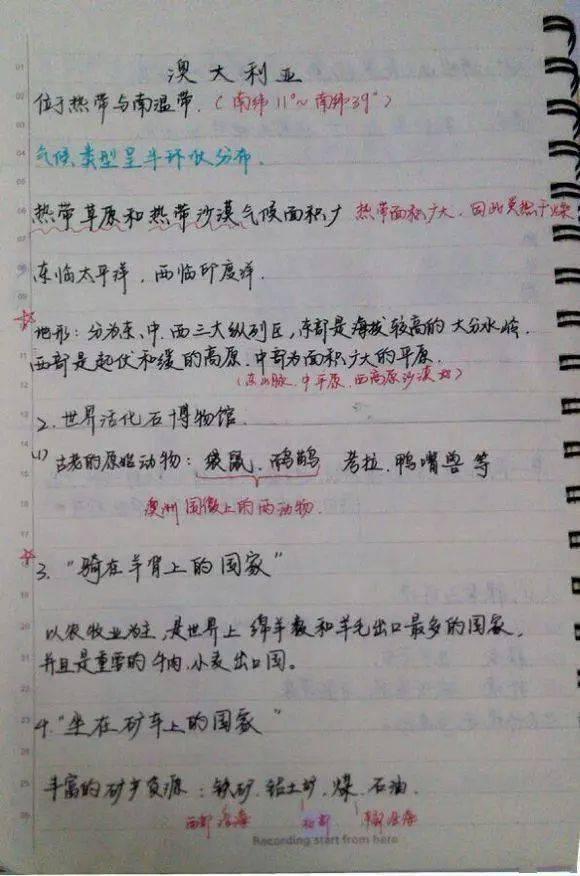 澳大利亚
位于热带与南温带.（南纬11°~南纬39°）
气候类型呈半环状分布.
热带草原和热带沙漠气候面积广 热带面积广大,因此炎热干燥
东临太平洋,西临印度洋.
☆
地形:分为东、中、西三大纵列区,东部是海拔较高的大分水岭.
西部是起伏和缓的高原.中部为面积广大的平原.
(东山脉.中平原.西高原沙漠
2.世界活化石博物馆.
(1)古老的原始动物:袋鼠.鸸鹋 考拉.鸭嘴兽等
澳洲国徽上的两动物.
☆
3."骑在羊背上的国家"
以农牧业为主,是世界上绵羊数和羊毛出口最多的国家,
并且是重要的牛肉.小麦出口国。
4."坐在矿车上的国家"
丰富的矿产资源:铁矿.铝土矿.煤.石油.
西部 北部 东部沿海
Recording start from here